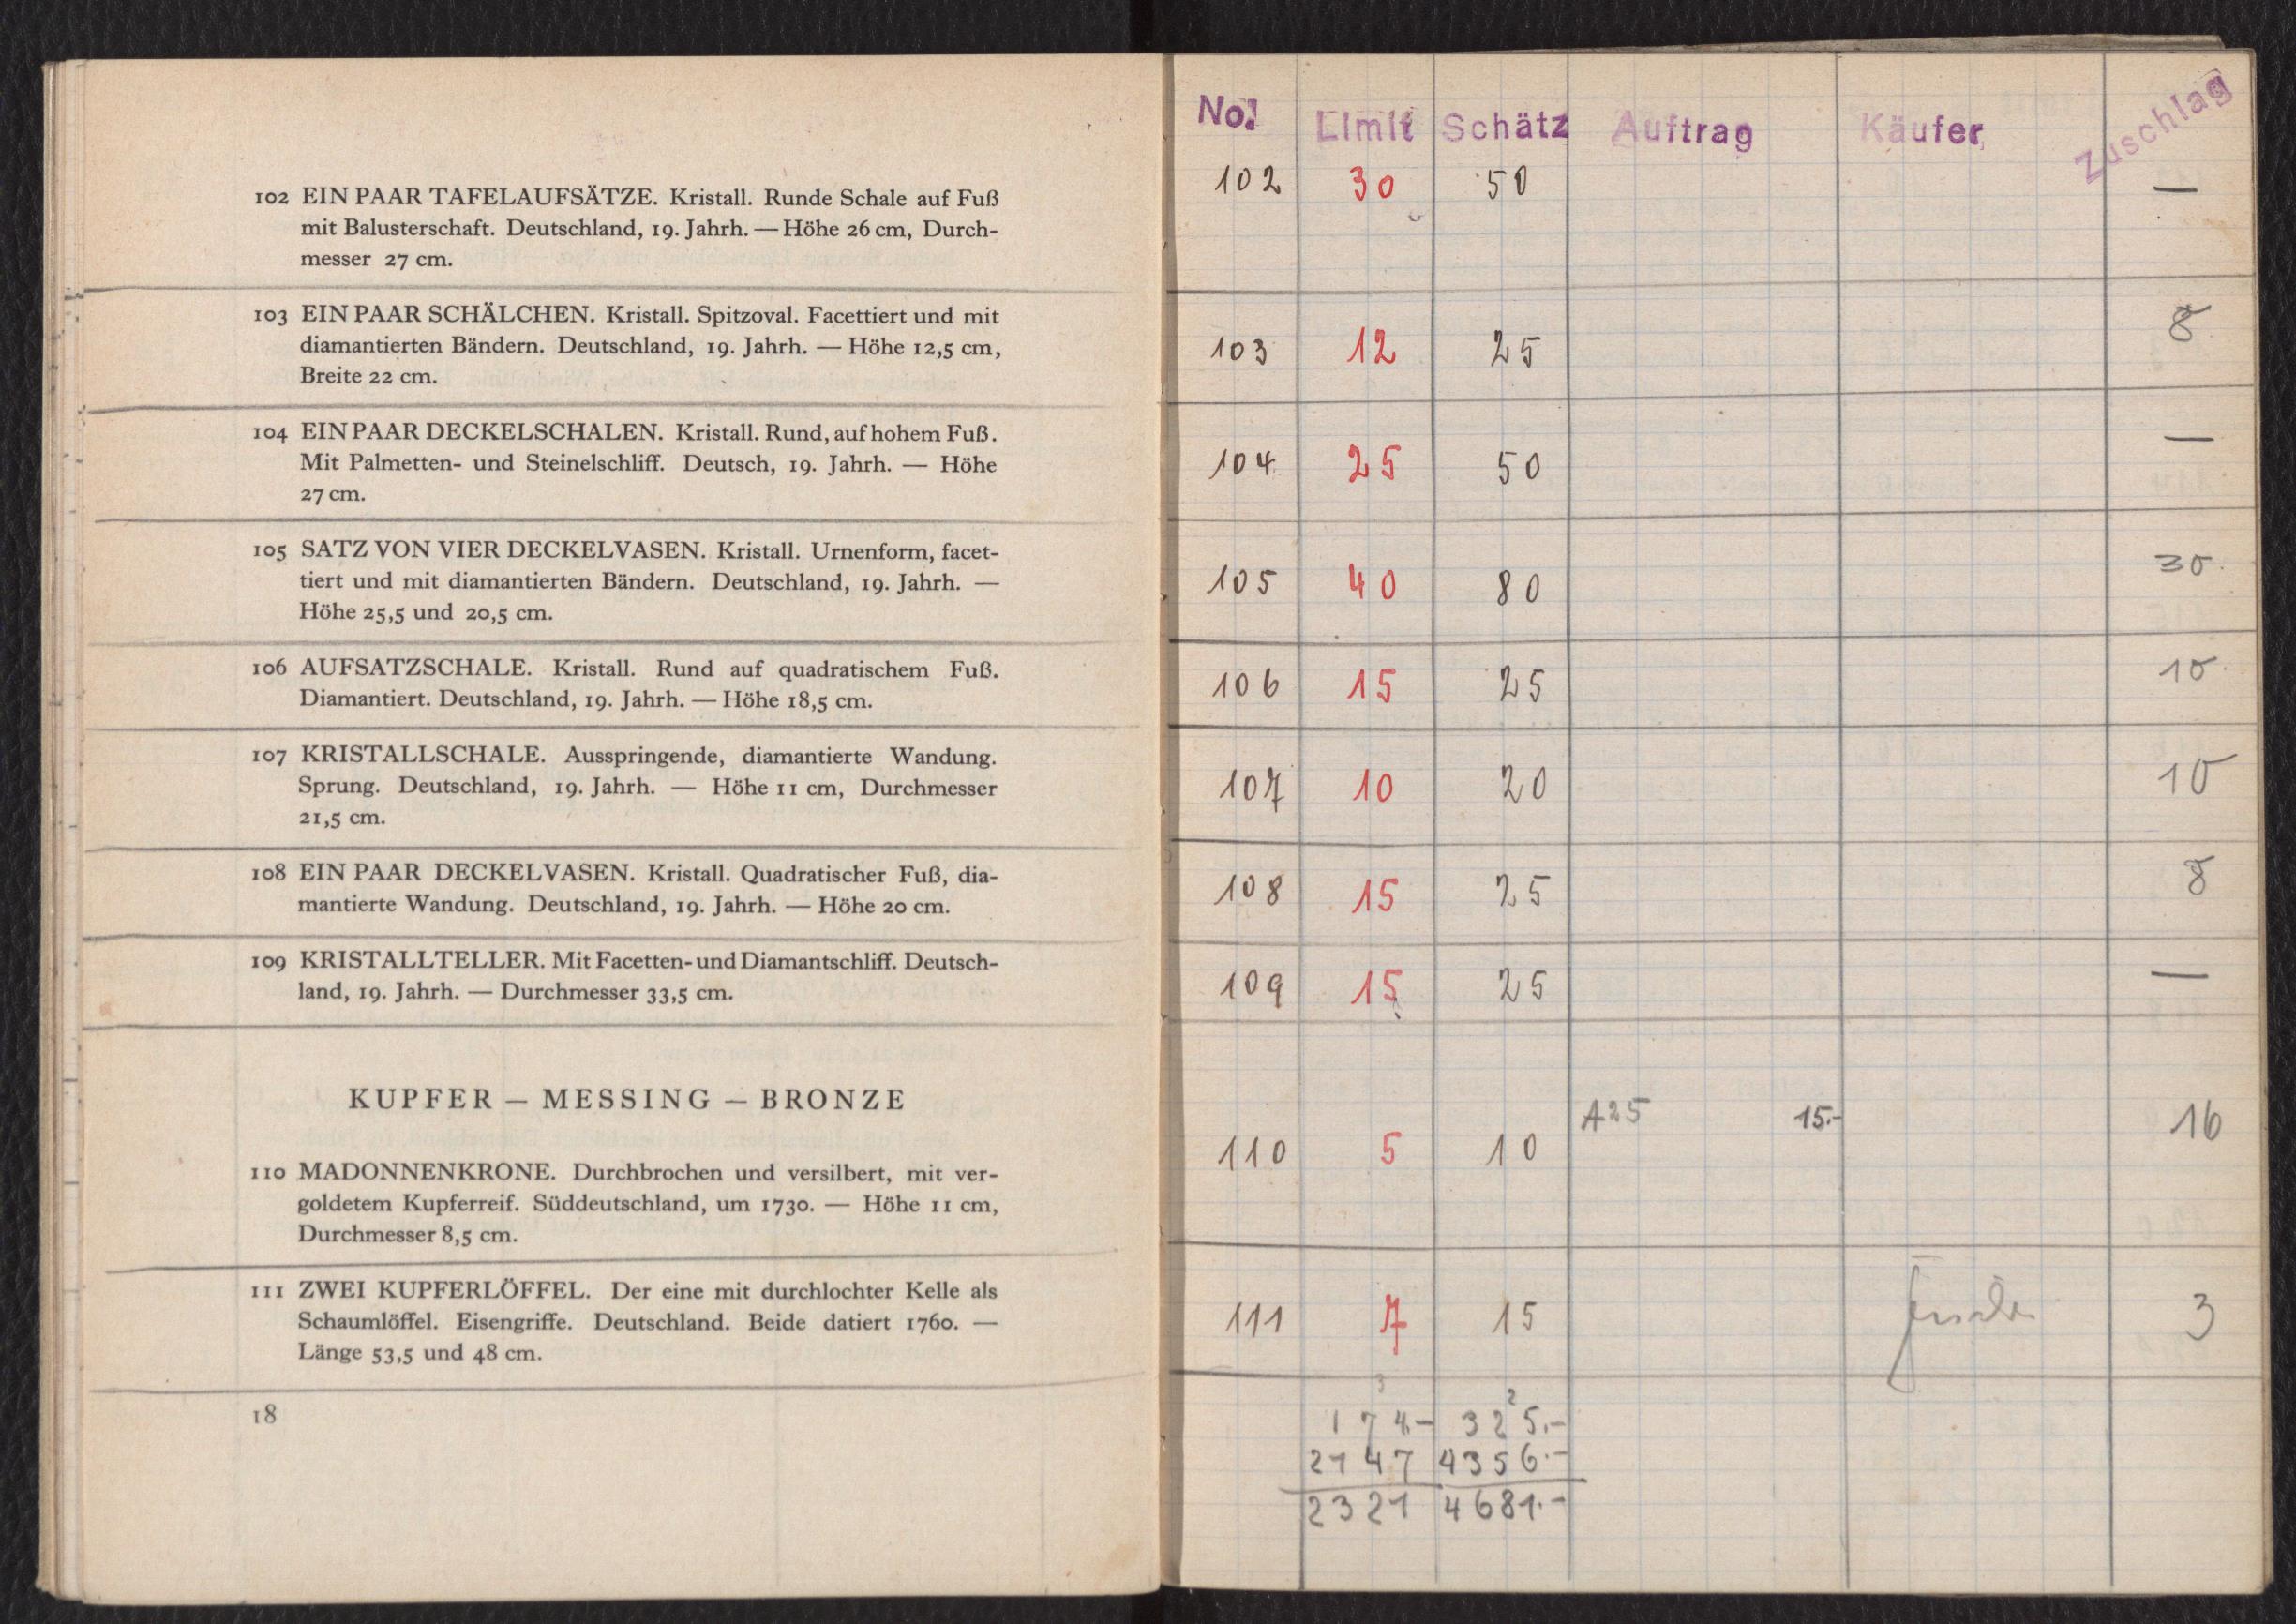 102 EIN PAAR TAFELAUFSÄTZE. Kristall. Runde Schale auf Fuß
mit Balusterschaft. Deutschland, 19. Jahrh. — Höhe 26 cm, Durch-
messer 27 cm.
103 EIN PAAR SCHÄLCHEN. Kristall. Spitzoval. Facettiert und mit
diamantierten Bändern. Deutschland, 19. Jahrh. — Höhe 12,5 cm,
Breite 22 cm.
104 EIN PAAR DECKELSCHALEN. Kristall. Rund, auf hohem Fuß.
Mit Palmetten- und Steinelschliff. Deutsch, 19. Jahrh. — Höhe
27 cm.
105 SATZ VON VIER DECKELVASEN. Kristall. Urnenform, facet-
tiert und mit diamantierten Bändern. Deutschland, 19. Jahrh. —
Höhe 25,5 und 20,5 cm.
106 AUFSATZSCHALE. Kristall. Rund auf quadratischem Fuß.
Diamantiert. Deutschland, 19. Jahrh. — Höhe 18,5 cm.
107 KRISTALLSCHALE. Ausspringende, diamantierte Wandung.
Sprung. Deutschland, 19. Jahrh. — Höhe 11 cm, Durchmesser
21,5 cm.
108 EIN PAAR DECKELVASEN. Kristall. Quadratischer Fuß, dia-
mantierte Wandung. Deutschland, 19. Jahrh. — Höhe 20 cm.
109 KRISTALLTELLER. Mit Facetten- und Diamantschliff. Deutsch-
land, 19. Jahrh. — Durchmesser 33,5 cm.
KUPFER — MESSING — BRONZE
110 MADONNENKRONE. Durchbrochen und versilbert, mit ver-
goldetem Kupferreif. Süddeutschland, um 1730. — Höhe 11 cm,
Durchmesser 8,5 cm.
111 ZWEI KUPFERLÖFFEL. Der eine mit durchlochter Kelle als
Schaumlöffel. Eisengriffe. Deutschland. Beide datiert 1760. —
Länge 53,5 und 48 cm.
18
No. Limit Schätz Auftrag Käufer Zuschlag
102 30 50 —
103 12 25 8
104 25 50 —
105 40 80 30
106 15 25 10
107 10 20 10
108 15 25 8
109 15 25 —
110 5 10 A25 15.- 16
111 7 15 3
3 2
174.- 325.-
2147 4356.-
2321 4681.-